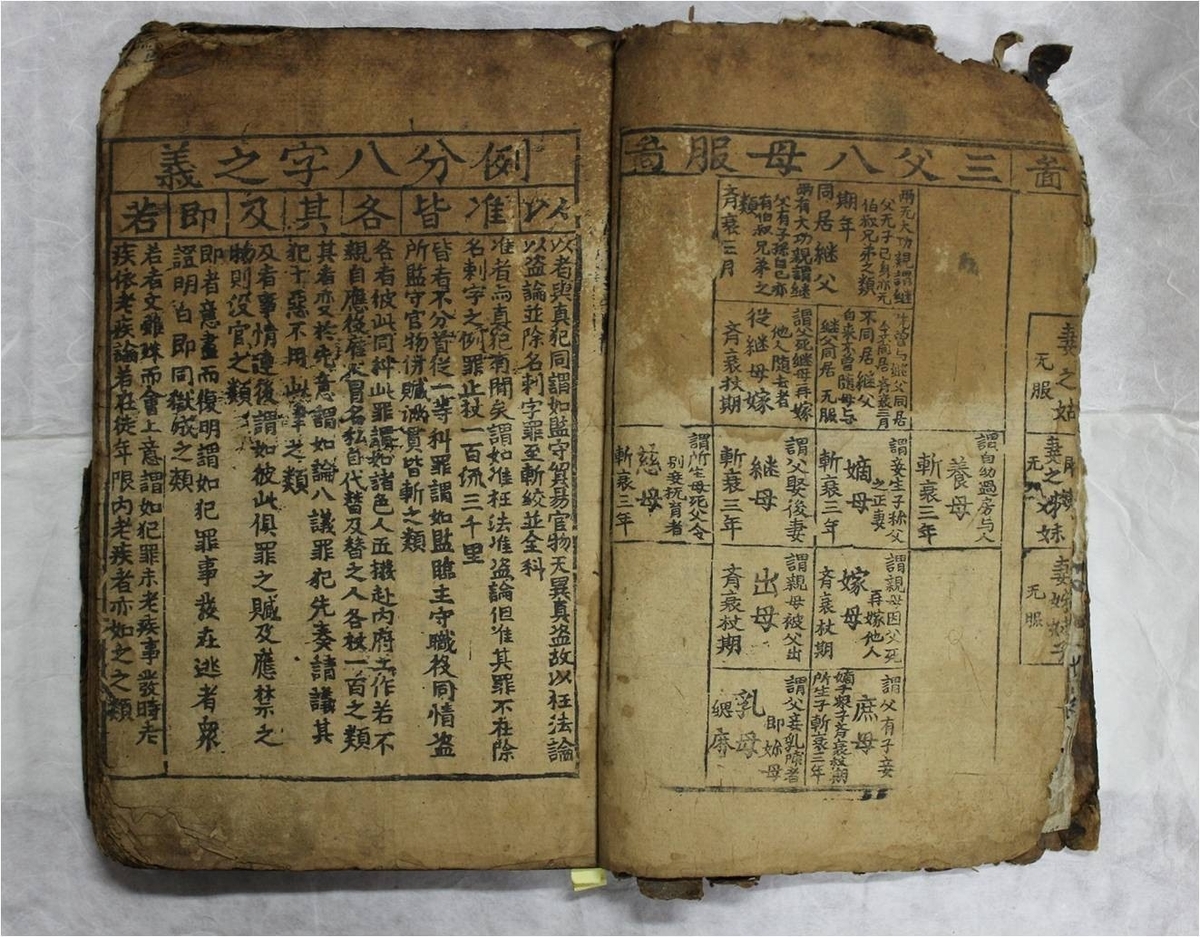 啚
妻之姑
无服
妻之姊妹
妻姊妹子
无服
三父八母服啚
兩无大功親謂継
父无子己身亦无
伯叔兄弟之類
期年
同居継父
兩有大功親謂継
父有子孫自己亦
有伯叔兄弟之
類
斉衰三月
不同居継父
自来不曾随母与
継父同居 无服
謂父死継母再嫁
他人随去者
從継母嫁
斉衰杖期
謂自幼過房与人
養母
斬衰三年
謂妾生子称父
之正妻
嫡母
斬衰三年
謂父娶後妻
継母
斬衰三年
謂所生母死父令
别妾抚育者
慈母
斬衰三年
謂親母因父死
再嫁他人
嫁母
斉衰杖期
謂親母被父出
出母
斉衰杖期
謂父有子妾
庶母
嫡子衆子斉衰杖期
所生子斬衰三年
謂父妾乳哺者
即妳母
乳母
緦麻
例分八字之義
以准皆各其及即若
以者與真犯同謂如監守貿易官物无異真盗故以枉法論
以盗論並除名刺字罪至斬絞並全科
准者與真犯有間矣謂如准枉法准盗論但准其罪不在除
名刺字之例罪止杖一百流三千里
皆者不分首從一等科罪謂如監臨主守職役同情盗
所監守官物併贓滿貫皆斬之類
各者彼此同科此罪謂如諸色人匠撥赴内府工作若不
親自應役雇人冒名私自代替及替之人各杖一百之類
其者变於先意謂如論八議罪犯先奏請議其
犯十惡不用此律之類
及者事情連後謂如彼此俱罪之贓及應禁之
物則没官之類
即者意盡而復明謂如犯罪事發在逃者衆
證明白即同獄成之類
若者文雖殊而會上意謂如犯罪未老疾事發時老
疾依老疾論若在徒年限内老疾者亦如之之類